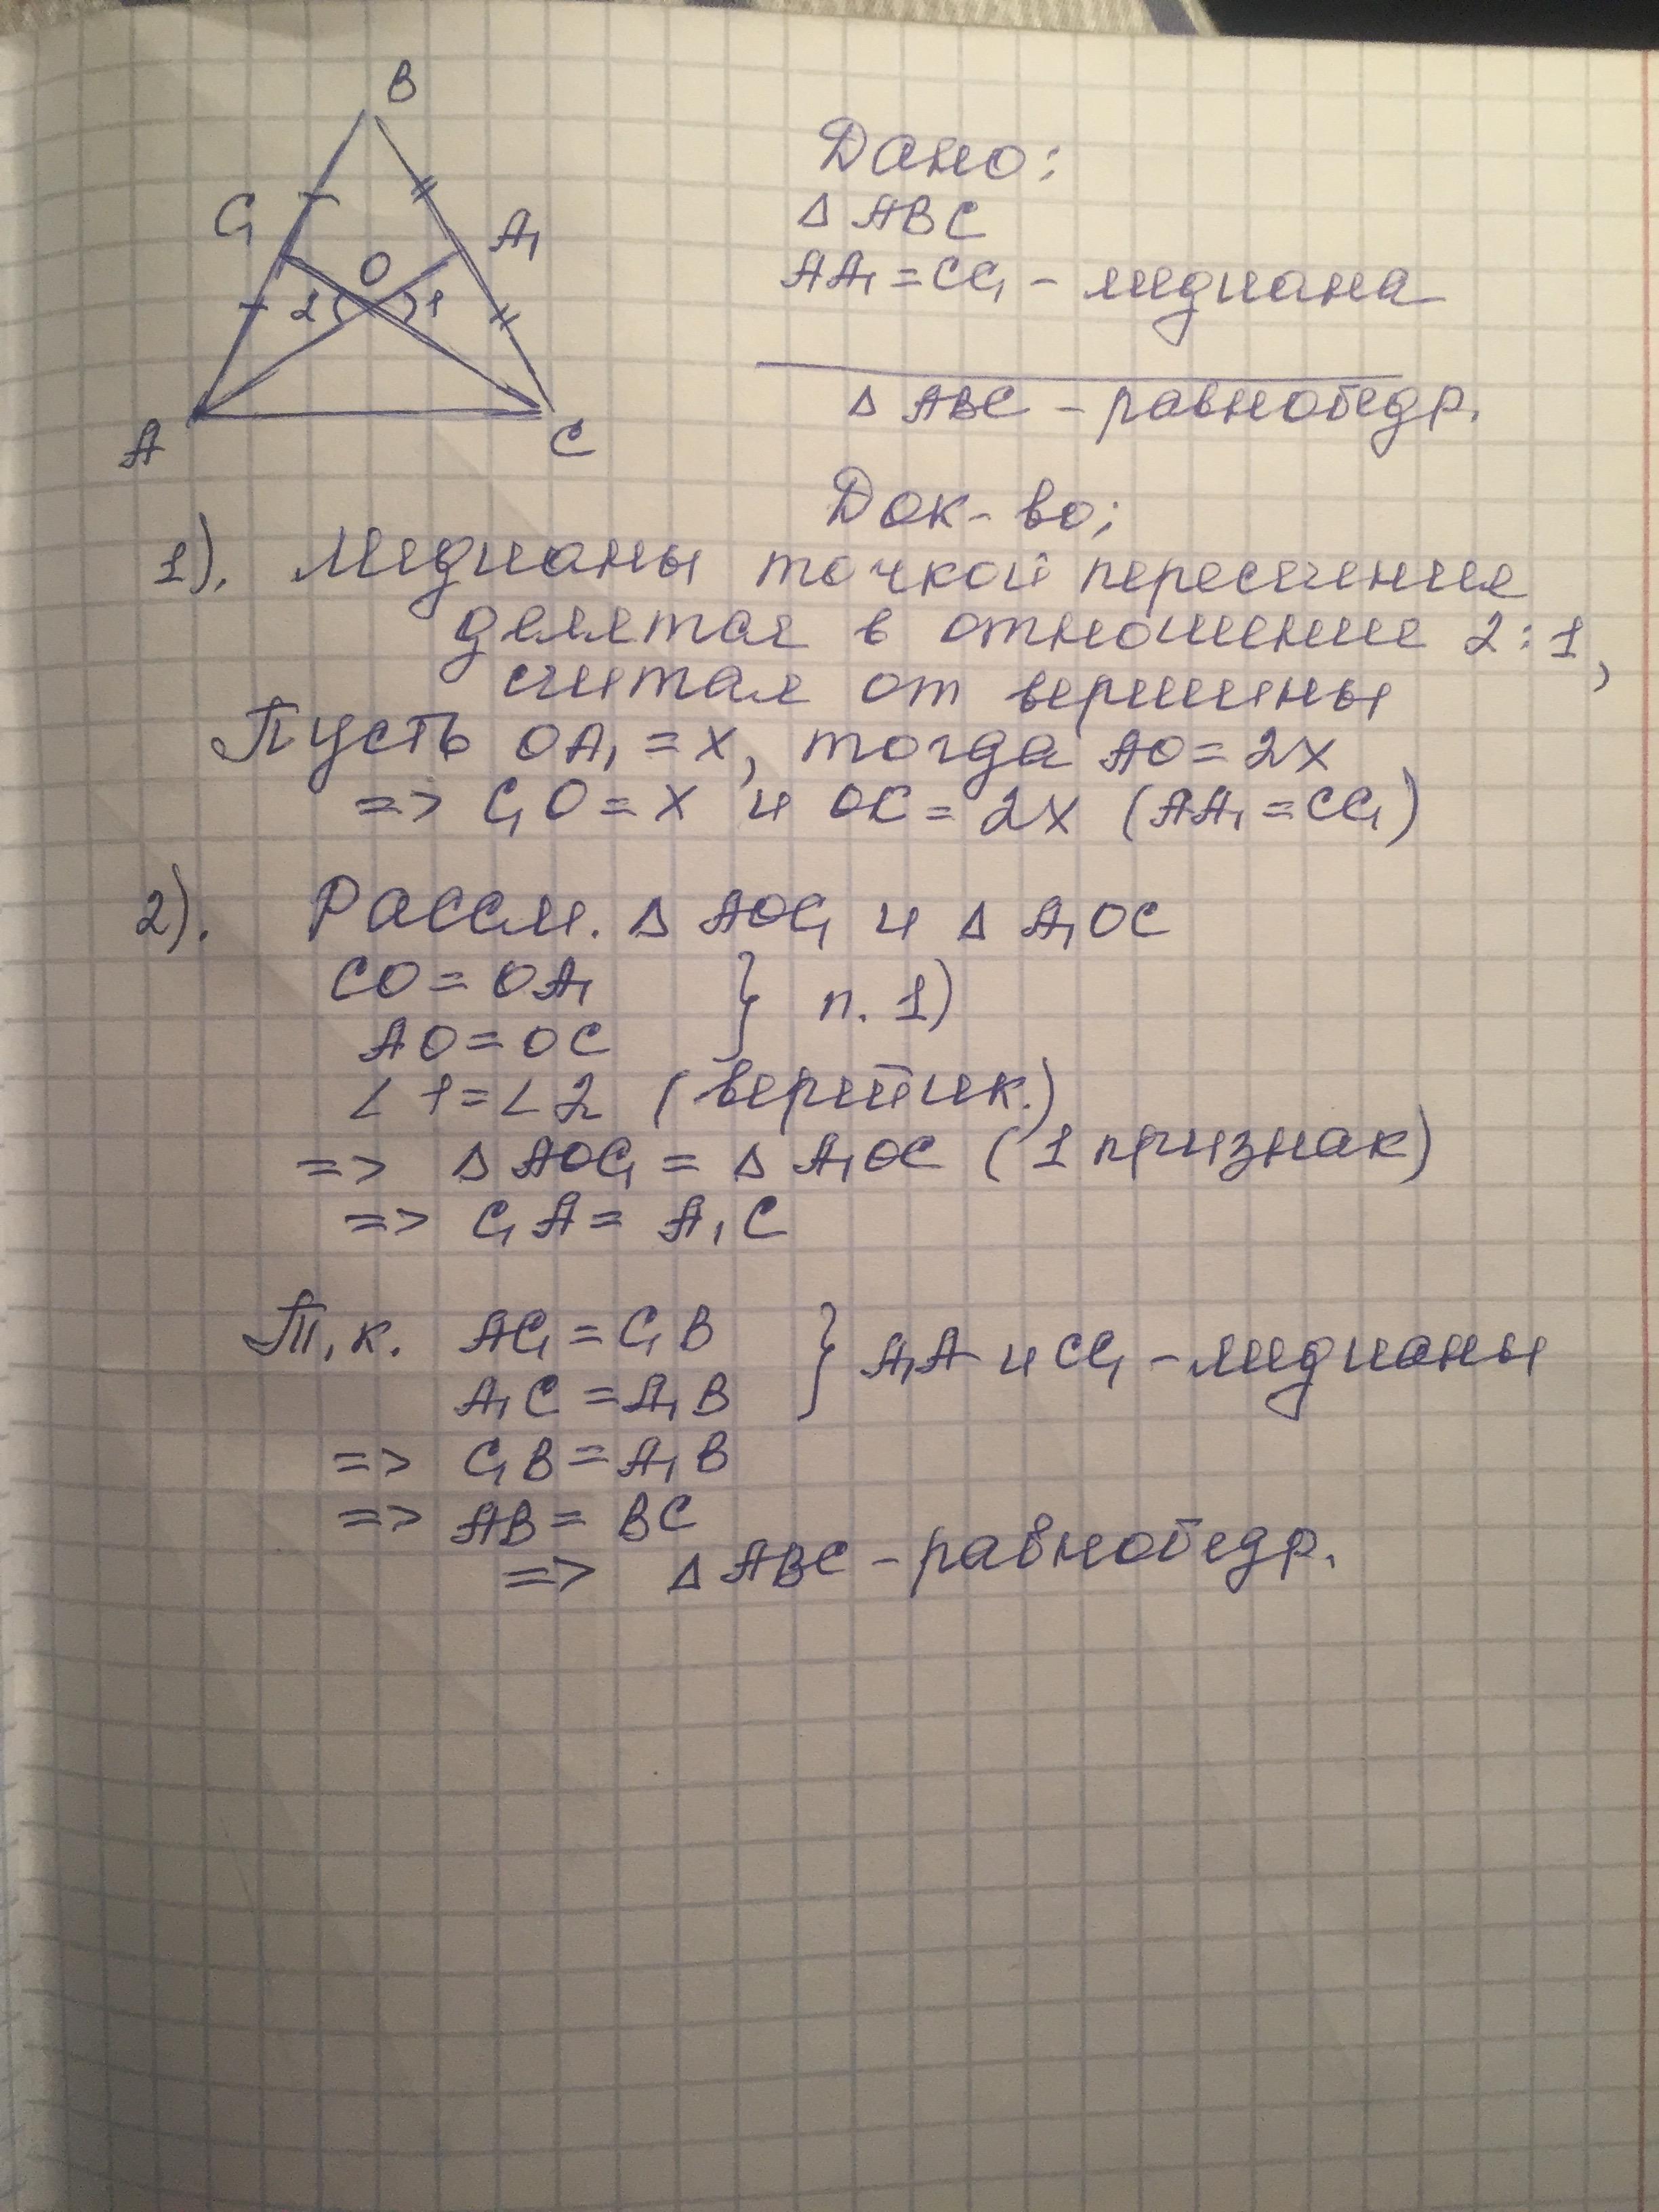 B
C₁
A₁
O
2
1
A
C
Дано:
△ ABC
AA₁ = CC₁ - медиана
△ ABC - равнобедр.
Док-во;
1). Медианы точкой пересечения
делятся в отношение 2:1,
считая от вершины
Пусть OA₁ = x, тогда AO = 2x
=> C₁O = x и OC = 2x (AA₁ = CC₁)
2). Рассм. △ AOC₁ и △ A₁OC
CO = OA₁
AO = OC } п. 1)
∠1 = ∠2 (вертик.)
=> △ AOC₁ = △ A₁OC (1 признак)
=> C₁A = A₁C
Т.к. AC₁ = C₁B
A₁C = A₁B } A₁A и CC₁ - медианы
=> C₁B = A₁B
=> AB = BC
=> △ ABC - равнобедр.